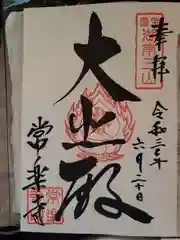 奉拝
令和三年
六月二十日
湖南三山
大悲殿
常楽寺